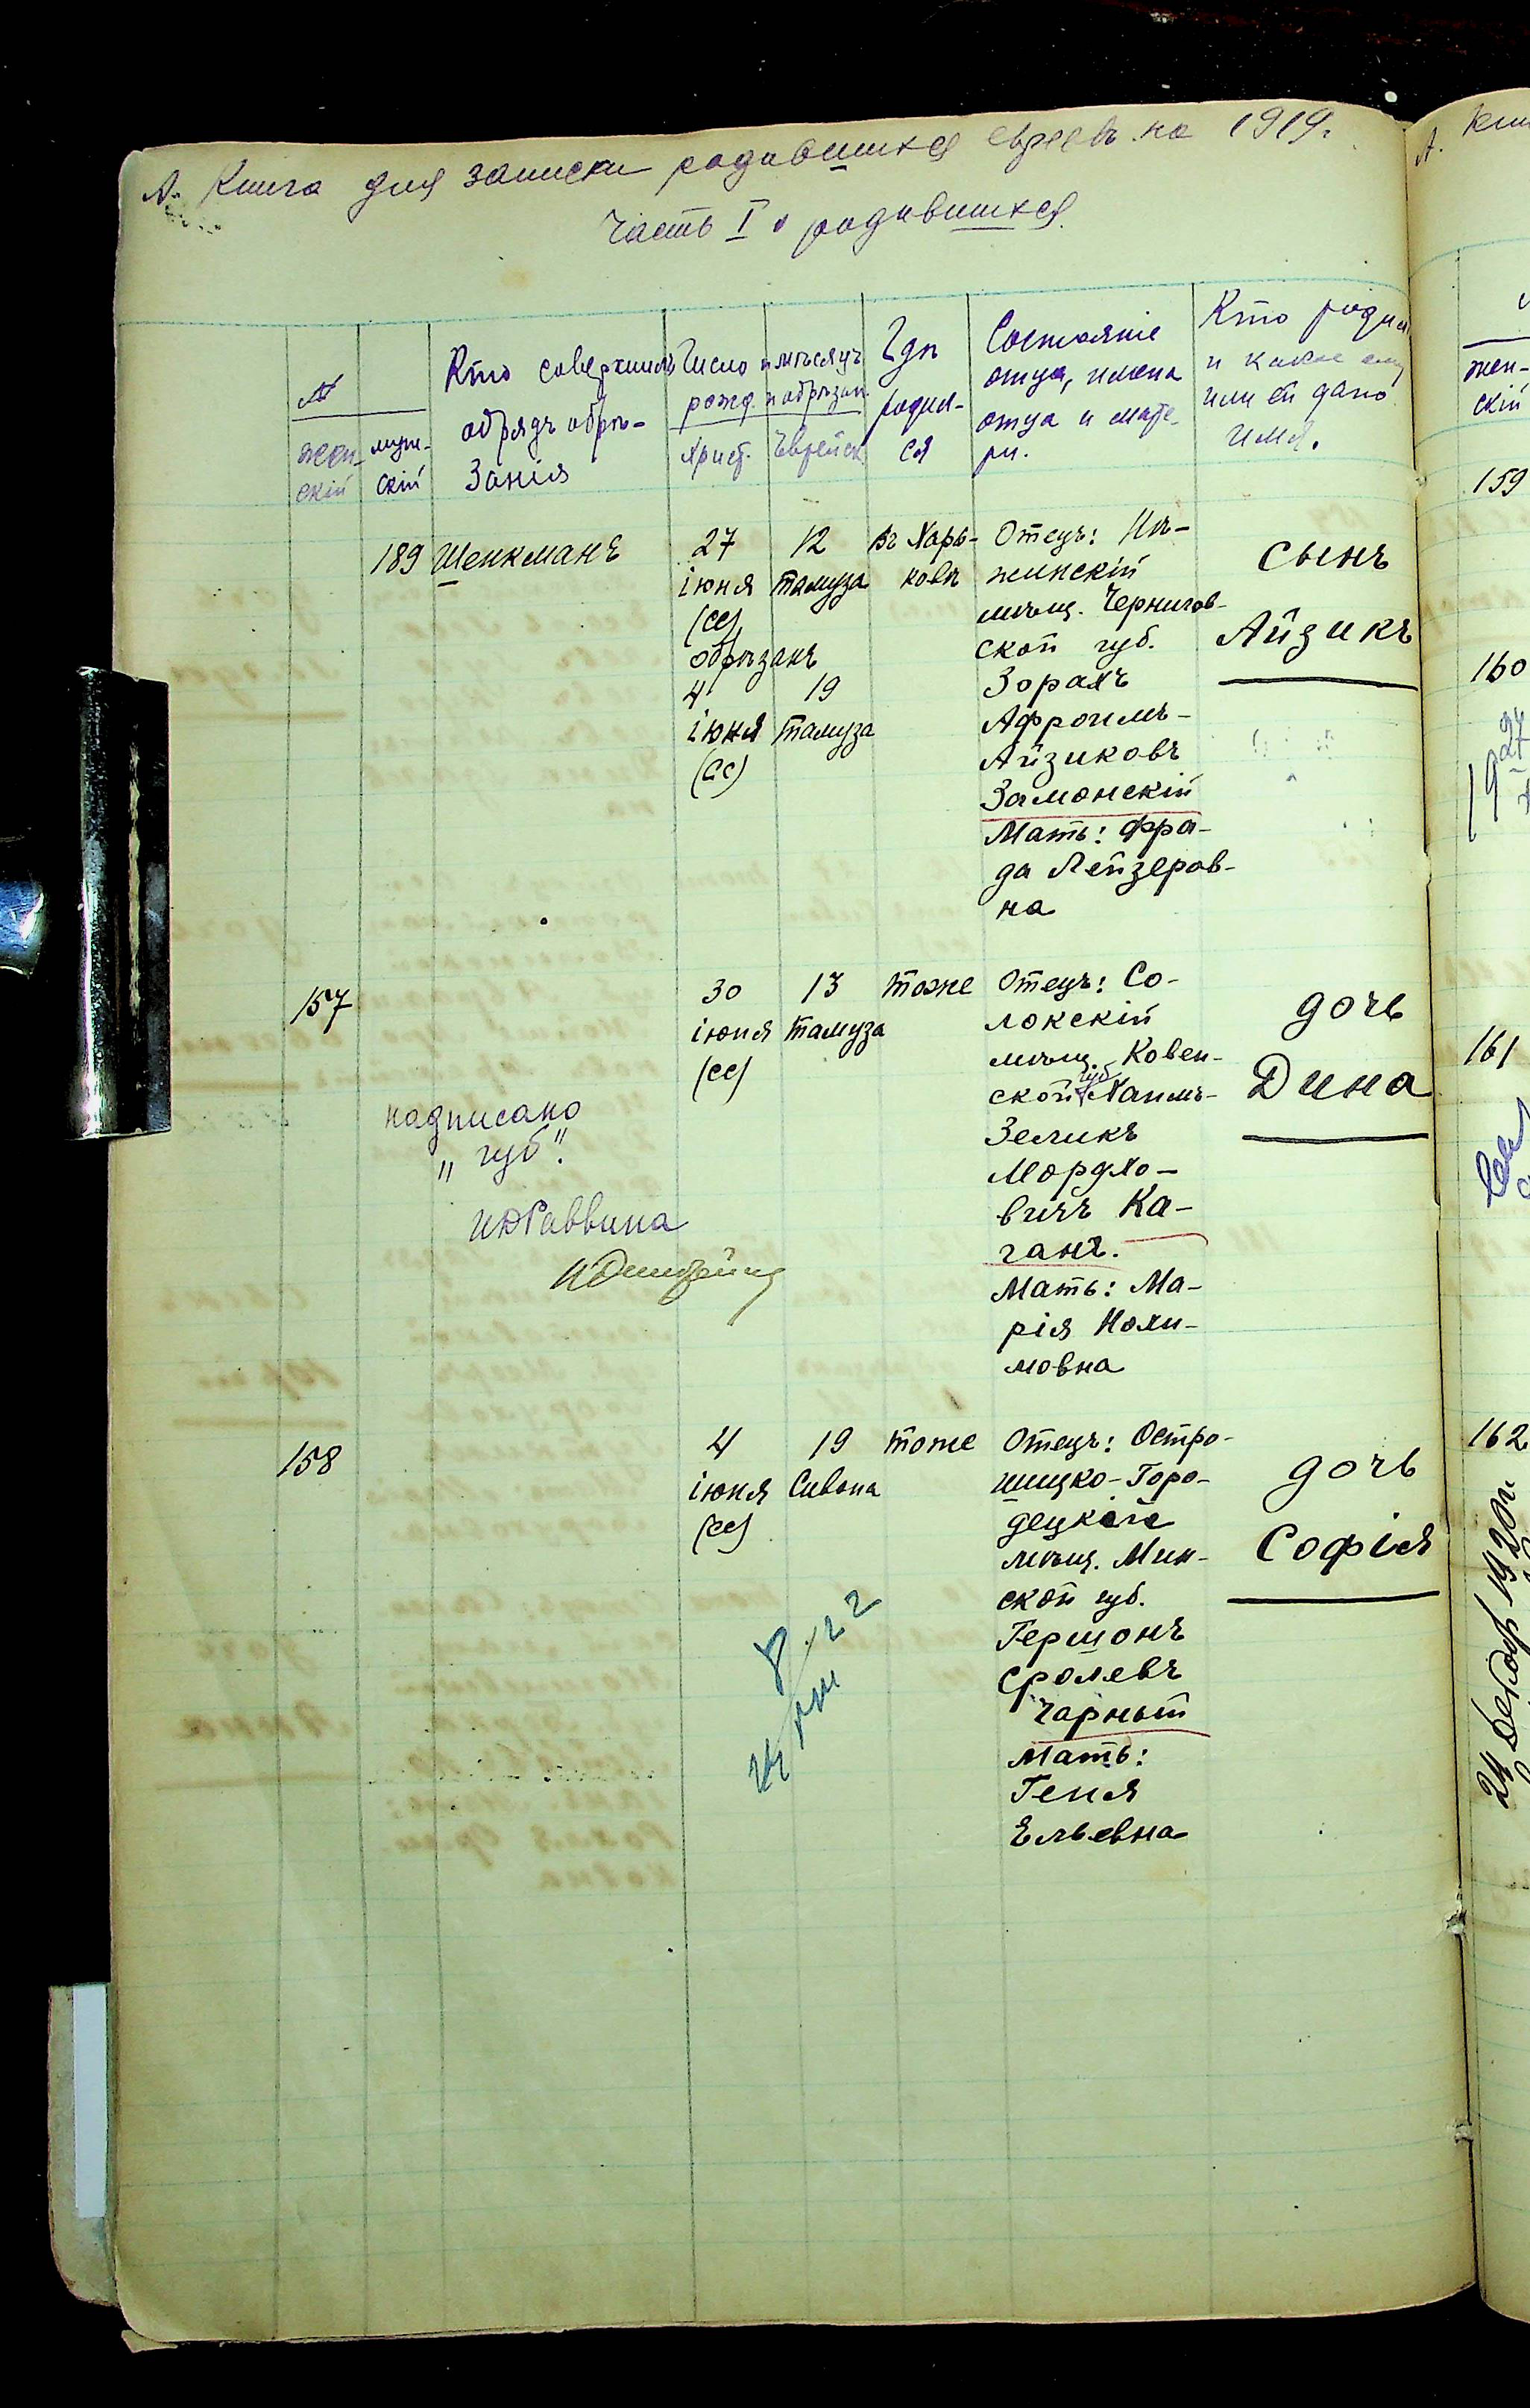 А. Книга для записки родившихся евреевъ на 1919г.
Часть I о родившихся.
№
жен-
скій
муж-
скій
Кто совершилъ
обрядъ обрѣ-
занія
Число и мѣсяцъ
рожд. и обрѣзан.
Христ.
Еврейск.
Гдѣ
родил-
ся
Состояніе
отца, имена
отца и мате-
ри.
Кто родил
и какое ему
или ей дано
имя.
189
Шенкманъ
27
іюня
(сс)
обрѣзанъ
4
іюня
(сс)
12
тамуза
19
тамуза
въ Харь-
ковѣ
Отецъ: Нѣ-
жинскій
мѣщ. Черниговъ-
ской губ.
Зорахъ
Афроимъ-
Айзиковъ
Замонскій
Мать: Фра-
да Лейзеров-
на
сынъ
Айзикъ
157
30
іюня
(сс)
13
тамуза
тоже
Отецъ: Со-
локскій
мѣщ. Ковен-
ской губ. Хаимъ-
Зеликъ
Мордхо-
вичъ Ка-
ганъ.
Мать: Ма-
рія Нохи-
мовна
дочь
Дина
надписано
„губ".
ИД Раввина
158
4
іюня
(сс)
19
Сивана
тоже
Отецъ: Остро-
шицко-Горо-
децкій
мѣщ. Мин-
ской губ.
Гершонъ
Сролевъ
Чарный
Мать:
Геня
Ельевна
дочь
Софія
А.
жен-
скій
159
160
161
162